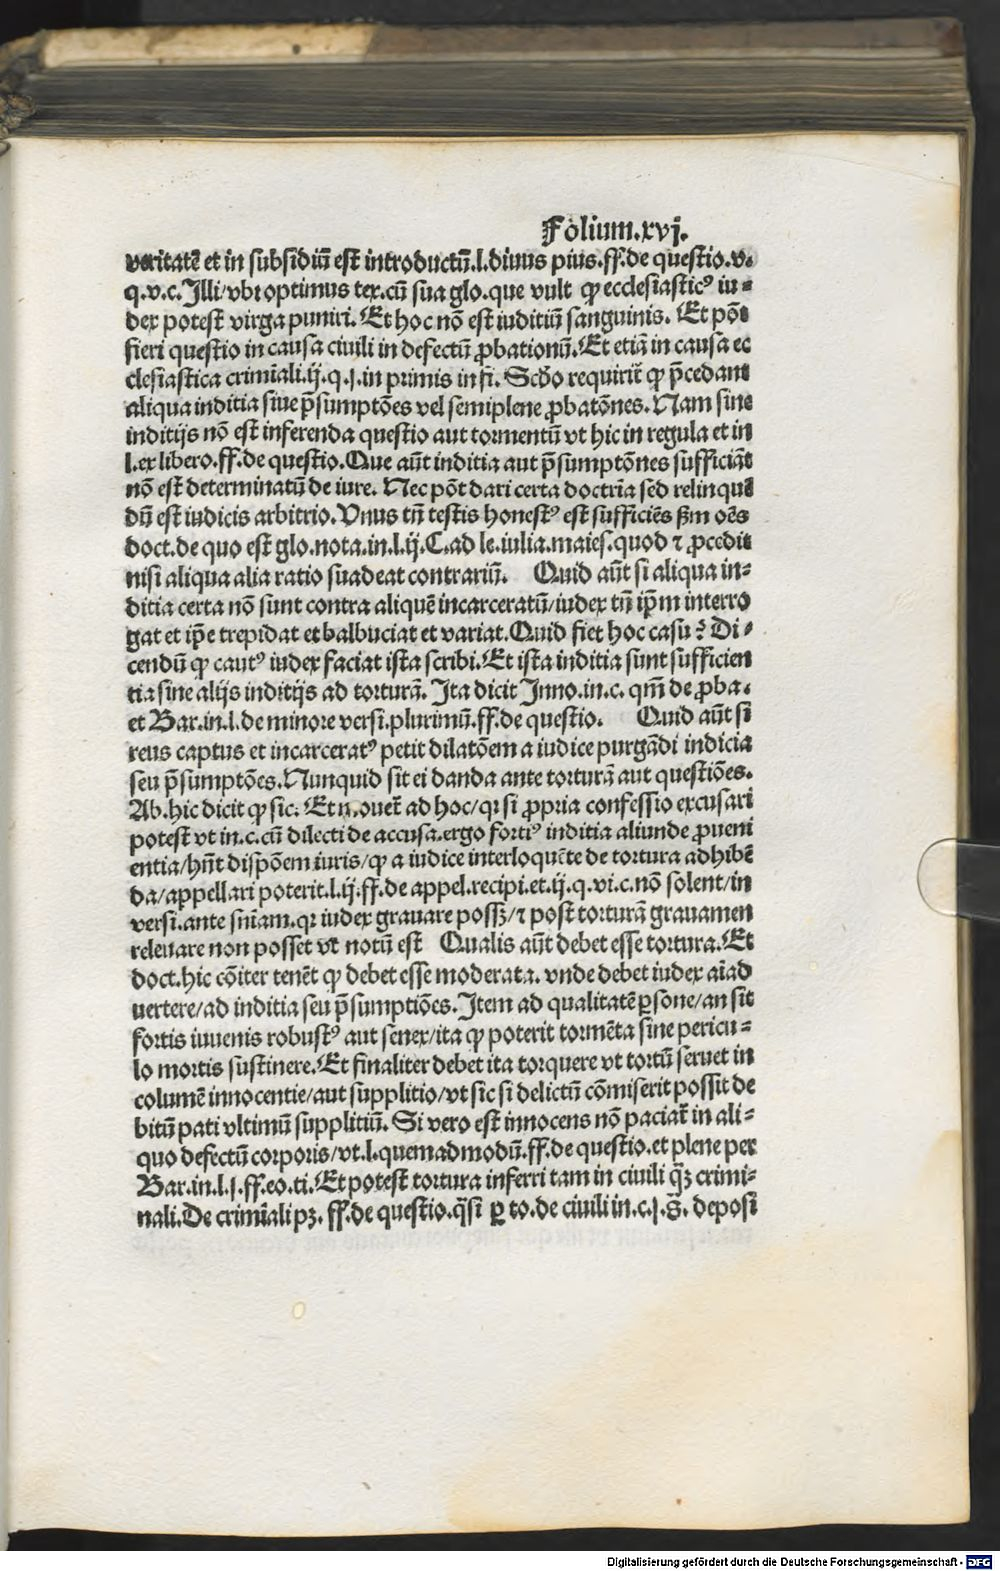 Folium.xvj.
veritatē et in subsidiū est introductū.l.diuus pius.ff.de questio.v.
q.v.c.Illi/vbi optimus tex.cū sua glo.que vult ꝙ ecclesiasticꝰ iu⸗
dex potest virga puniri. Et hoc nō est iuditiū sanguinis. Et pōt
fieri questio in causa ciuili in defectū ꝓbationū. Et etiā in causa ec
clesiastica crimīali.ij.q.j.in primis in fi. Scḋo requiriť ꝙ p̄cedant
aliqua inditia siue p̄sumptōes vel semiplene ꝓbatōnes. Nam sine
inditijs nō est inferenda questio aut tormentū vt hic in regula et in
l.ex libero.ff.de questio. Que aūt inditia aut p̄sumptōnes sufficiāt
nō est determinatū de iure. Nec pōt dari certa doctrīa sed relinquē
dū est iudicis arbitrio. Vnus tñ testis honestꝰ est sufficiēs ẜm oēs
doct.de quo est glo.nota.in.l.ij.C.ad le.iulia.maies.quod ⁊ ꝓcedit
nisi aliqua alia ratio suadeat contrariū. Quid aūt si aliqua in⸗
ditia certa nō sunt contra aliquē incarceratū/iudex tñ ip̄m interro
gat et ip̄e trepidat et balbuciat et variat. Quid fiet hoc casu? Di⸗
cendū ꝙ cautꝰ iudex faciat ista scribi. Et ista inditia sunt sufficien
tia sine alijs inditijs ad torturā. Ita dicit Inno.in.c. qm̄ de ꝓba.
et Bar.in.l.de minore versi.plurimū.ff.de questio. Quid aūt si
reus captus et incarceratꝰ petit dilatōem a iudice purgādi indicia
seu p̄sumptōes. Nunquid sit ei danda ante torturā aut questiōes.
Ab.hic dicit ꝙ sic. Et mouet̄ ad hoc/qꝛ si ꝓpria confessio excusari
potest vt in.c.cū dilecti de accusa.ergo fortiꝰ inditia aliunde ꝓueni
entia/hn̄t dispōem iuris/ꝙ a iudice interloquēte de tortura adhibē
da/appellari poterit.l.ij.ff.de appel.recipi.et.ij.q.vi.c.nō solent/in
versi.ante sn̄iam.qꝛ iudex grauare possꝫ/⁊ post torturā grauamen
releuare non posset vt notū est Qualis aūt debet esse tortura. Et
doct.hic cōiter tenēt ꝙ debet esse moderata. vnde debet iudex aīad
uertere/ad inditia seu p̄sumptiōes. Item ad qualitatē ꝑsone/an sit
fortis iuuenis robustꝰ aut senex/ita ꝙ poterit tormēta sine pericu⸗
lo mortis sustinere. Et finaliter debet ita torquere vt tortū seruet in
columē innocentie/aut supplitio/vt sic si delictū cōmiserit possit de
bitū pati vltimū supplitiū. Si vero est innocens nō paciať in ali⸗
quo defectū corporis/vt.l.quemadmodū.ff.de questio.et plene per
Bar.in.l.j.ff.eo.ti. Et potest tortura inferri tam in ciuili q̄ꝫ crimi⸗
nali. De crimīali pꝫ. ff.de questio.q̄si ꝑ to.de ciuili in.c.j.§. deposi
Digitalisierung gefördert durch die Deutsche Forschungsgemeinschaft - DFG